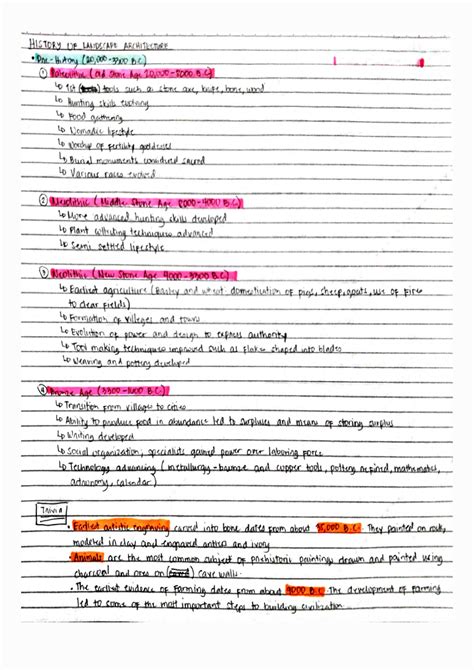 HISTORY OF LANDSCAPE ARCHITECTURE
• Pre-History (20,000-3300 B.C)
① Paleolithic (Old Stone Age 20,000-8000 B.C)
↳ 1st tools such as stone axe, knife, bone, wood
↳ Hunting skills evolving
↳ Food gathering
↳ Nomadic lifestyle
↳ Worship of fertility goddesses
↳ Burial monuments considered sacred
↳ Various races evolved
② Neolithic (Middle Stone Age 8000-4000 B.C)
↳ More advanced hunting skills developed
↳ Plant techniques advanced
↳ Semi settled lifestyle
③ Neolithic (New Stone Age 4000-3300 B.C)
↳ Earliest agriculture (Barley and wheat, domestication of pigs, sheep, goats, use of fire
to clear fields)
↳ Formation of villages and towns
↳ Evolution of power and design to express authority
↳ Tool making techniques improved such as flakes shaped into blades
↳ Weaving and pottery developed
④ Bronze Age (3300-1000 B.C)
↳ Transition from villages to cities
↳ Ability to produce food in abundance led to surpluses and means of storing surplus
↳ Writing developed
↳ Social organization, specialists gained power over laboring force
↳ Technology advancing (metallurgy-bronze and copper tools, pottery refined, mathematics,
astronomy, calendar)
Trivia
• Earliest artistic engraving carved into bone dates from about 35,000 B.C. They painted on rock,
modeled in clay and engraved antlers and ivory
• Animals are the most common subject of prehistoric paintings drawn and painted using
charcoal and ores on cave walls.
• The earliest evidence of farming dates from about 9000 B.C. The development of farming
led to some of the most important steps to building civilization.